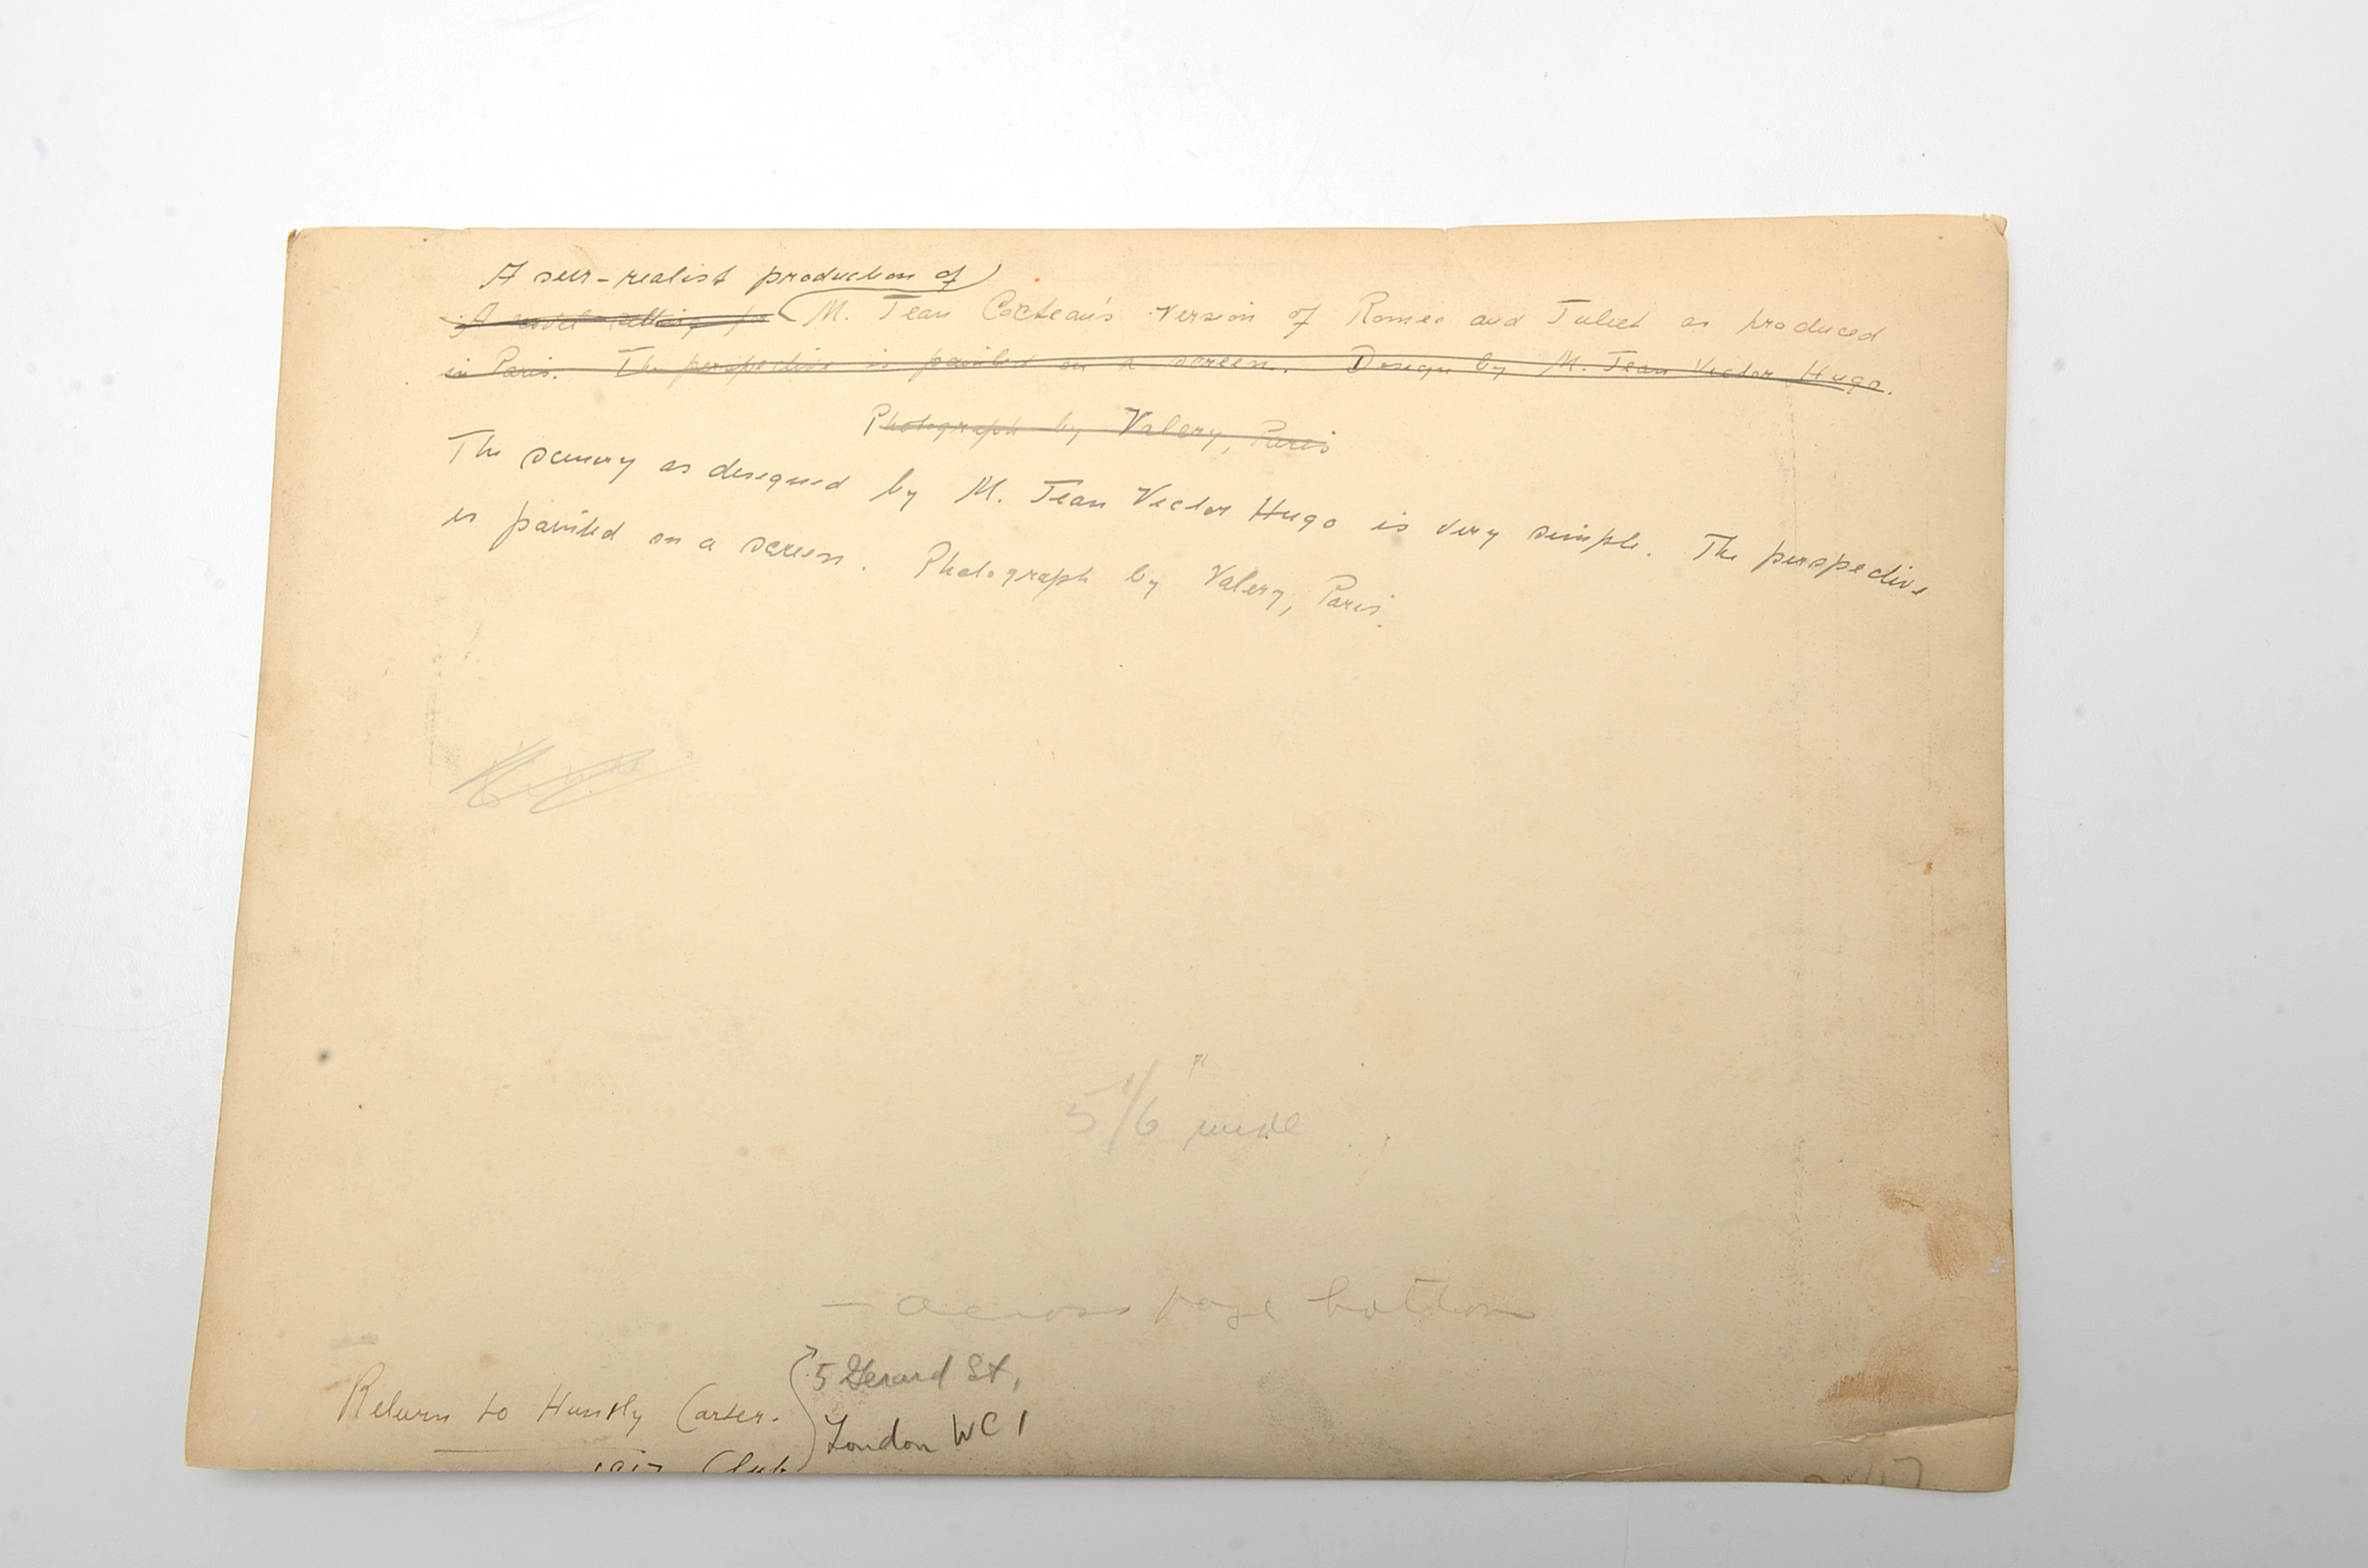 A surr-realist production of
A novel setting for M. Jean Cocteau's version of Romeo and Juliet as produced
in Paris. The perspective is painted on a screen. Design by M. Jean Victor Hugo.
Photograph by Valery, Paris
The scenery as designed by M. Jean Victor Hugo is very simple. The perspective
is painted on a screen. Photograph by Valery, Paris.
5 1/6" wide
— across page bottom
5 Gerard St,
Return to Huntly Carter.
London WC1
1917 Club